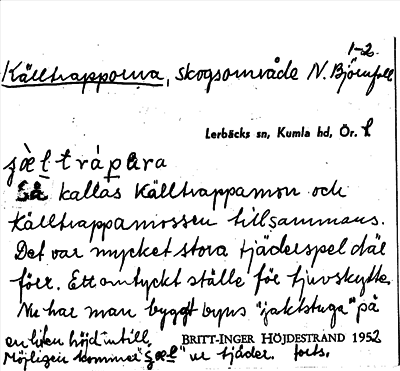 1-2.
Källtrapporna, skogsområde N. Björnfall
Lerbäcks sn, Kumla hd, Ör. l
Så kallas Källtrappamon och
Källtrappamossen tillsammans.
Det var mycket stora tjäderspel där
förr. Ett omtyckt ställe för tjuvskytte.
Nu har man byggt byns "jaktstuga" på
en liten höjd intill.
BRITT-INGER HÖJDESTRAND 1952
Möjligen kommer ur tjäder. forts.